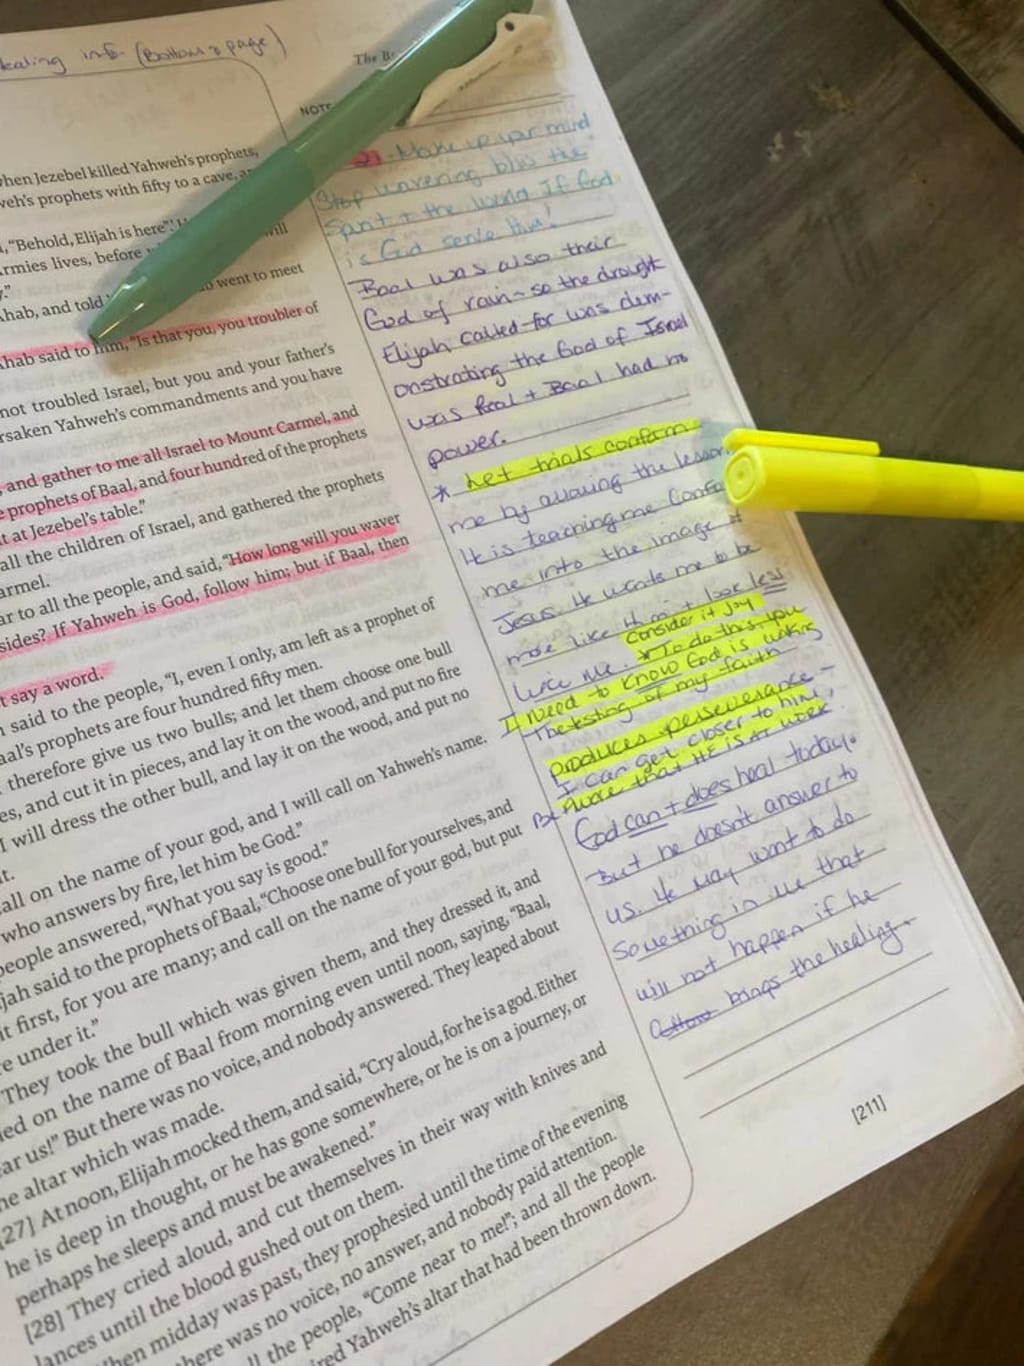 ealing info (Bottom of page)
The B
NOTE
when Jezebel killed Yahweh's prophets,
weh's prophets with fifty to a cave, a
, "Behold, Elijah is here"' ill
Armies lives, before
y."
Ahab, and told went to meet
Ahab said to him, "Is that you, you troubler of
not troubled Israel, but you and your father's
rsaken Yahweh's commandments and you have
, and gather to me all Israel to Mount Carmel, and
e prophets of Baal, and four hundred of the prophets
t at Jezebel's table."
all the children of Israel, and gathered the prophets
armel.
ar to all the people, and said, "How long will you waver
sides? If Yahweh is God, follow him; but if Baal, then
t say a word.
said to the people, "I, even I only, am left as a prophet of
aal's prophets are four hundred fifty men.
therefore give us two bulls; and let them choose one bull
es, and cut it in pieces, and lay it on the wood, and put no fire
I will dress the other bull, and lay it on the wood, and put no
it.
call on the name of your god, and I will call on Yahweh's name.
who answers by fire, let him be God."
people answered, "What you say is good."
jah said to the prophets of Baal, "Choose one bull for yourselves, and
it first, for you are many; and call on the name of your god, but put
re under it."
They took the bull which was given them, and they dressed it, and
led on the name of Baal from morning even until noon, saying, "Baal,
ar us!" But there was no voice, and nobody answered. They leaped about
he altar which was made.
[27] At noon, Elijah mocked them, and said, "Cry aloud, for he is a god. Either
he is deep in thought, or he has gone somewhere, or he is on a journey, or
perhaps he sleeps and must be awakened."
[28] They cried aloud, and cut themselves in their way with knives and
lances until the blood gushed out on them.
hen midday was past, they prophesied until the time of the evening
here was no voice, no answer, and nobody paid attention.
ll the people, "Come near to me!"; and all the people
ired Yahweh's altar that had been thrown down.
21 - Make up your mind
Stop wavering b/w the
Spirit + the world. If God
is God serve Him!
Baal was also their
God of rain - so the drought
Elijah called for was dem-
onstrating the God of Israel
was Real + Baal had no
power.
* Let trials conform
me by allowing the lesson
He is teaching me Confo
me into the image
Jesus. He wants me to be
more like him + look less
like me. Consider it Joy
* To do this, you
I need to know God is working
The testing of my faith
produces perseverance -
I can get closer to him,
Aware that HE IS AT WORK.
God can + does heal today.
But he doesn't answer to
us. He may want to do
something in me that
will not happen if he
brings the healing.
[211]